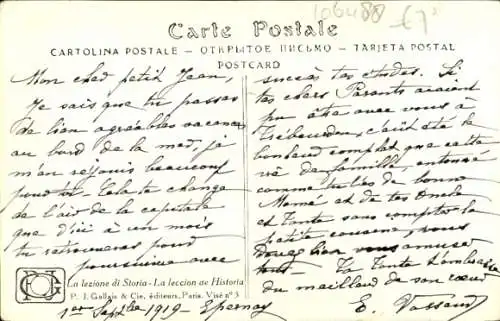 106488
£7
Carte Postale
CARTOLINA POSTALE - ОТКРЫТОЕ ПИСЬМО - TARJETA POSTAL
POSTCARD
Mon cher petit Jean,
Je sais que tu passes
de bien agréables vacances
au bord de la mer, je
m'en réjouis beaucoup
pour toi. Cela te change
de l'air de la capitale
que d'ici à un mois
tu retrouveras pour
poursuivre avec
succès tes études. Si
tes chers Parents avaient
pu être avec vous à
c'eût été le
bonheur complet que cette
vie de famille, entouré
comme tu l'es de bonne
Mémé et de tes Oncle
et Tante sans compter la
petite cousine, pour
bien vous amuser
tout. Ta Tante t'embrasse
du meilleur de son cœur
E. Vassard
La lezione di Storia - La leccion de Historia
P. J. Gallais & Cie, éditeurs, Paris. Visé n° 3
1er Septbre 1919 - Epernay